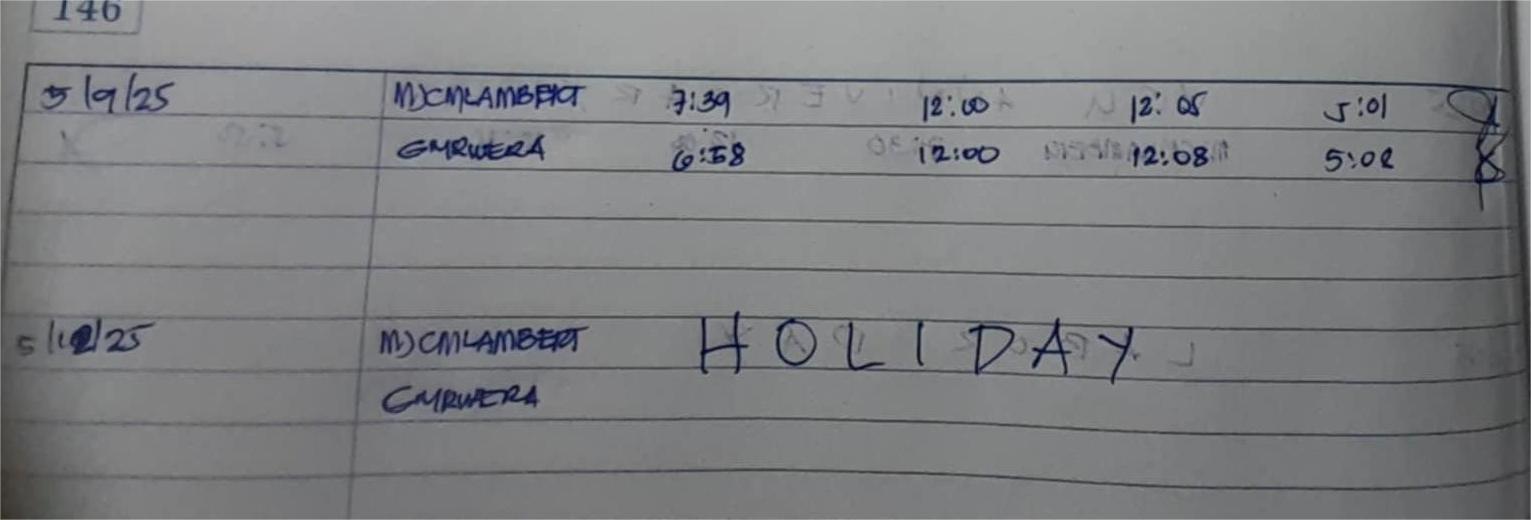 146
5/9/25 MJCMLAMBERT 7:39 12:00 12:05 5:01
GMRWERA 6:58 12:00 12:08 5:02
5/12/25 MJCMLAMBERT HOLIDAY
GMRWERA